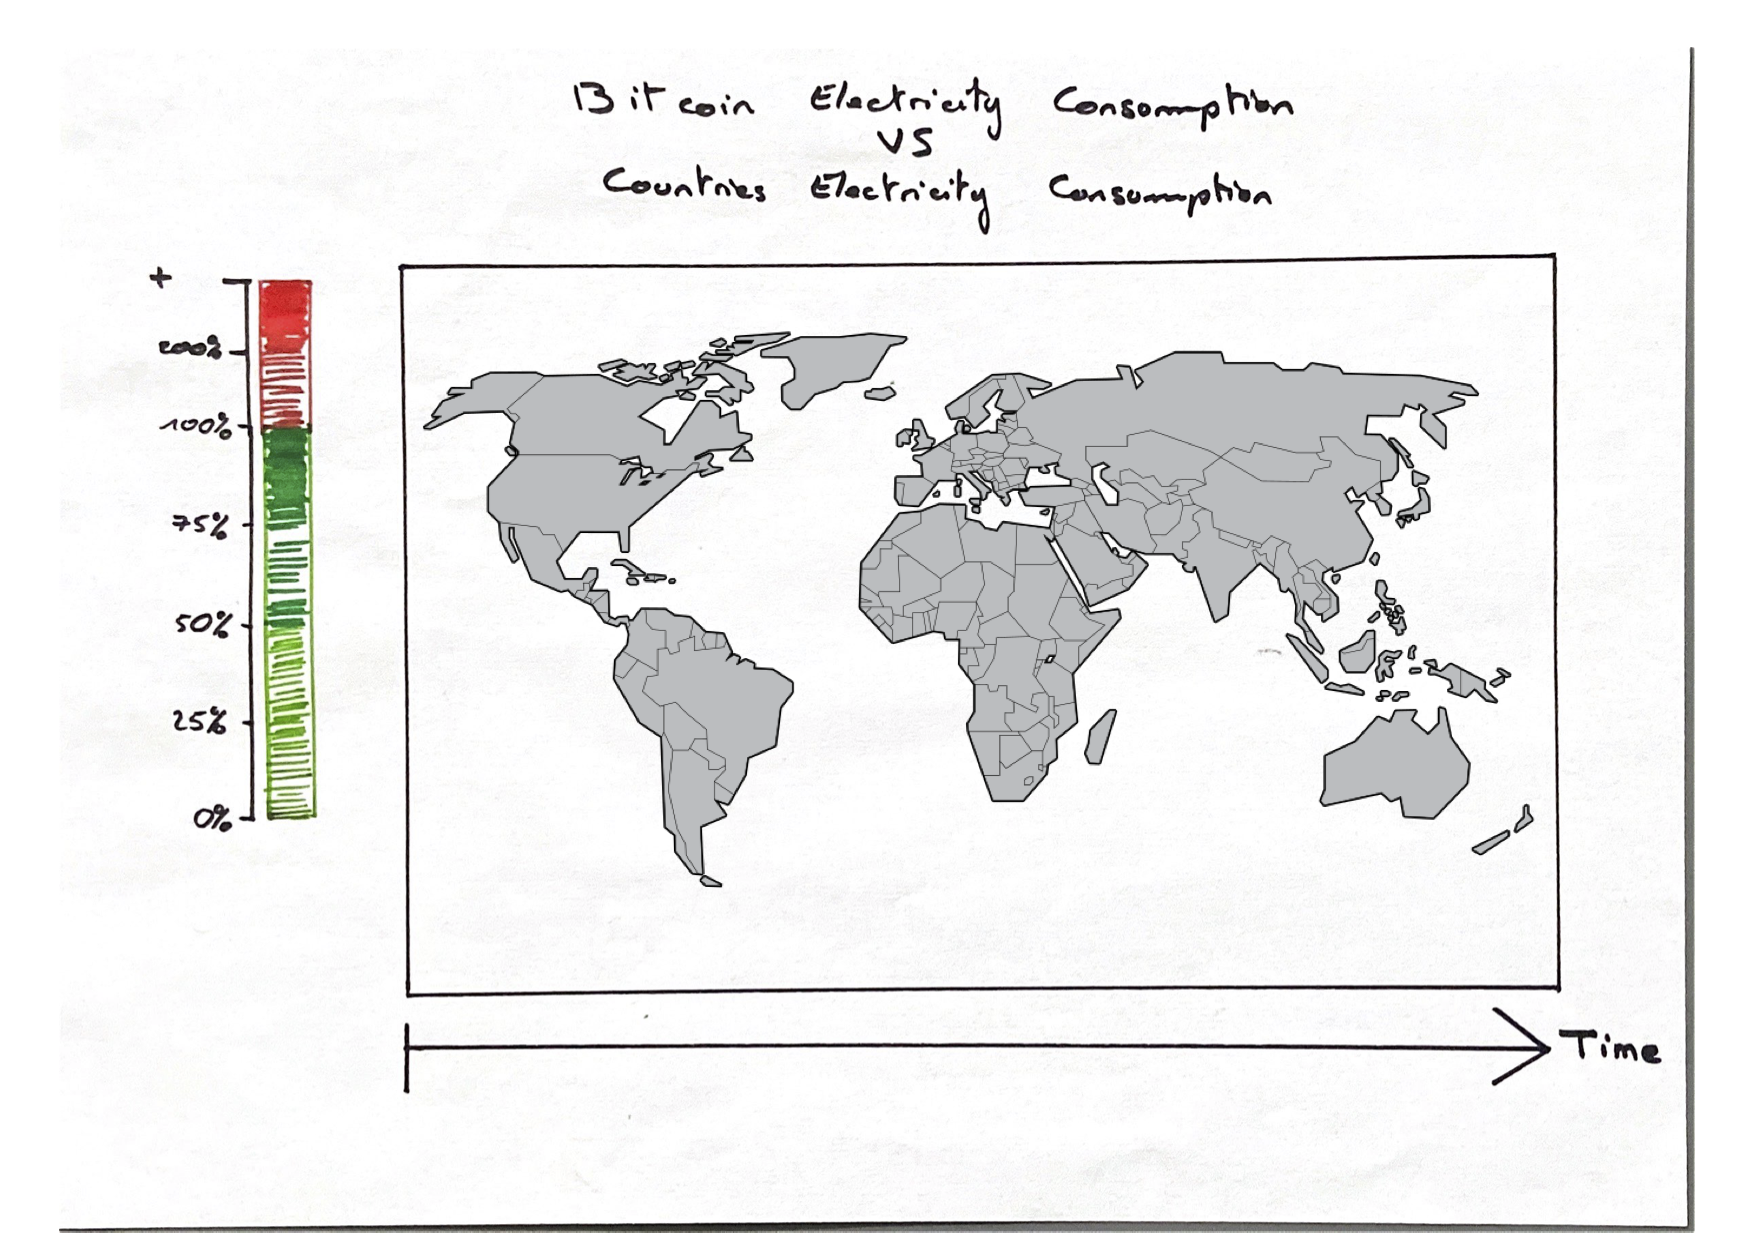 Bitcoin Electricity Consomption
VS
Countries Electricity Consumption
+
200%
100%
75%
50%
25%
0%
Time